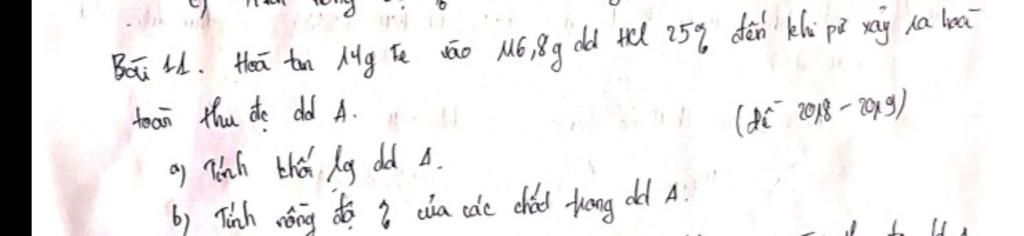 Bài 11. Hoà tan 14g Fe vào 116,8g dd HCl 25% đến khi pứ xảy ra hoàn
toàn thu đc dd A. (đề 2018 - 2019)
a) Tính khối lg dd A.
b) Tính nồng độ % của các chất trong dd A.